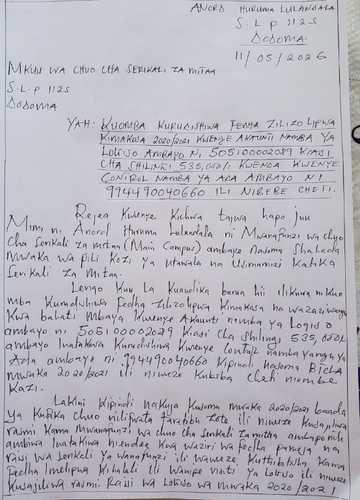 ANORD HURUMA LULANDALA
S.L.P 1125
DODOMA
11/05/2026
MKUU WA CHUO CHA SERIKALI ZA MITAA
S.L.P 1125
DODOMA
YAH: KUOMBA KURUDISHIWA FEDHA ZILIZOLIPWA
KIMAKOSA 2020/2021 KWENYE AKAUNTI NAMBA YA
LOGISO AMBAYO NI 505100002089 KIASI
CHA SHILINGI 535,000/= KWENDA KWENYE
CONTROL NAMBA YA ADA AMBAYO NI
994490040660 ILI NIBEBE CHETI.
Rejea kwenye kichwa tajwa hapo juu
Mimi ni Anord Huruma Lulandala ni Mwanafunzi wa chuo
cha Serikali za mitaa (Main Campus) ambaye nasoma Shahada
mwaka wa pili kozi ya utawala na Usimamizi katika
Serikali za Mitaa.
Lengo kuu la kuandika barua hii ilikuwa ni kuo
mba kurudishiwa fedha zilizolipwa kimakosa na wazazi wangu
kwa bahati mbaya kwenye Akaunti namba ya Logiso
ambayo ni 505100002089 kiasi cha shilingi 535,000/=
ambayo inatakiwa kurudishiwa kwenye control namba yangu ya
Ada ambayo ni 994490040660 kipindi nasoma
mwaka 2020/2021 ili niweze kubeba cheti niombe
kazi.
Lakini kipindi nakuja kusoma mwaka 2020/2021 baada
ya kufika chuo nilifwata taratibu zote ili niweze kusajiliwa
rasmi kama mwanafunzi wa chuo cha Serikali za mitaa
ambiwa inatakiwa niende kwa waziri wa fedha pamoja na
raisi wa Serikali ya wanafunzi ili waweze kuthibitisha kama
fedha imelipwa kihalali ili wanipe risiti ya Logiso ili niweze
kusajiliwa rasmi Raisi wa Logiso wa mwaka 2020/2021